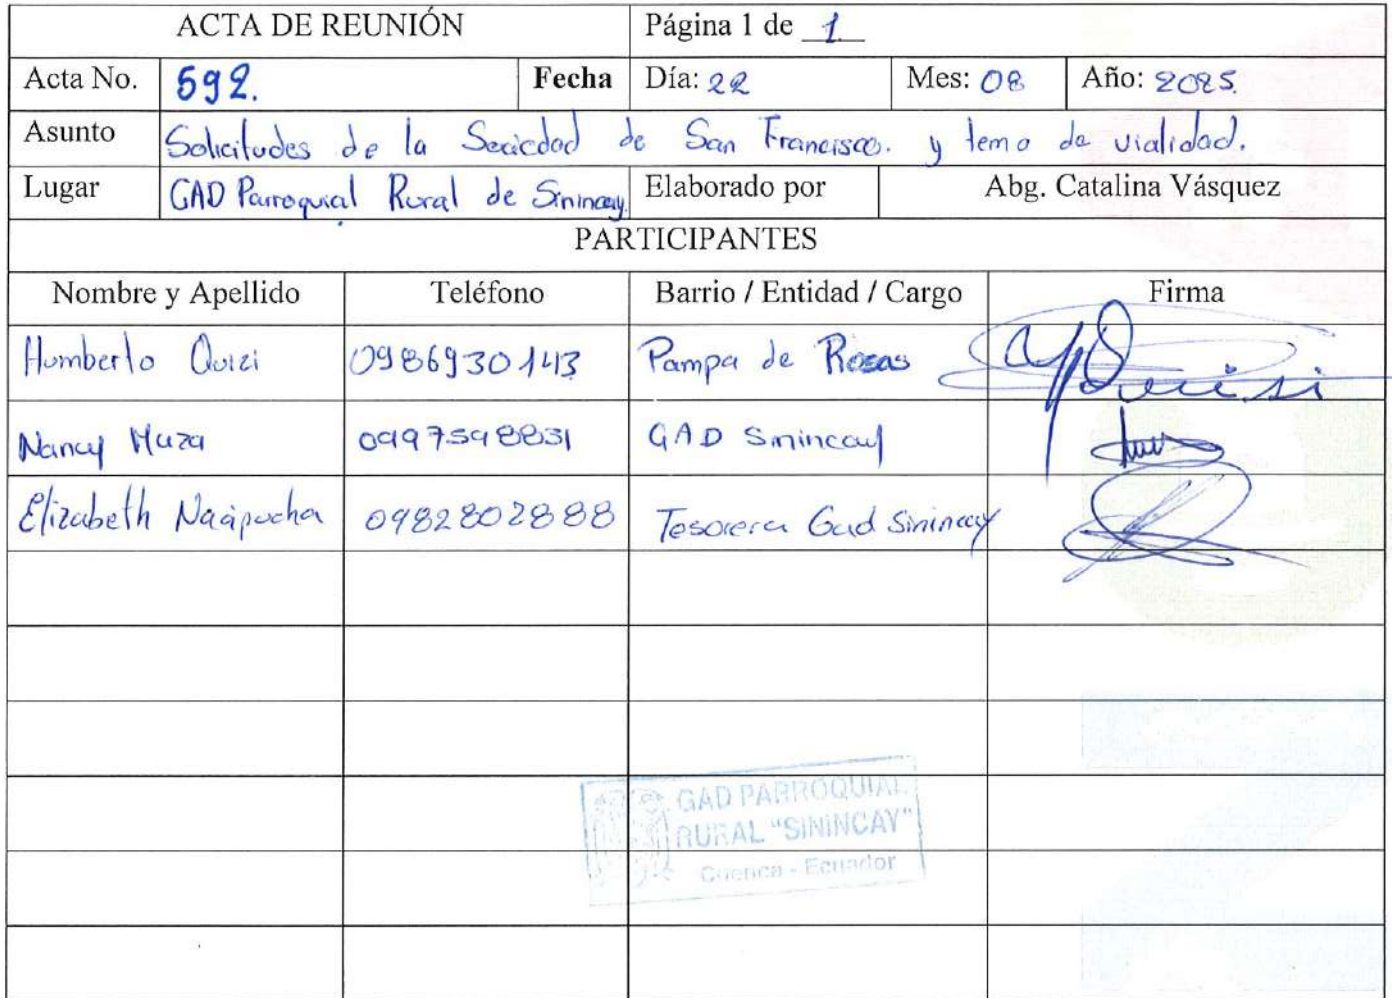 ACTA DE REUNIÓN Página 1 de 1
Acta No. 592. Fecha Día: 22 Mes: 08 Año: 2025.
Asunto Solicitudes de la Sociedad de San Francisco. y tema de vialidad.
Lugar GAD Parroquial Rural de Sinincay. Elaborado por Abg. Catalina Vásquez
PARTICIPANTES
Nombre y Apellido Teléfono Barrio / Entidad / Cargo Firma
Humberto Quizi 0986930143 Pampa de Rosas
Nancy Muza 0997598831 GAD Sinincay
Elizabeth Naipucha 0982802888 Tesorera Gad Sinincay
GAD PARROQUIAL
RURAL "SININCAY"
Cuenca - Ecuador